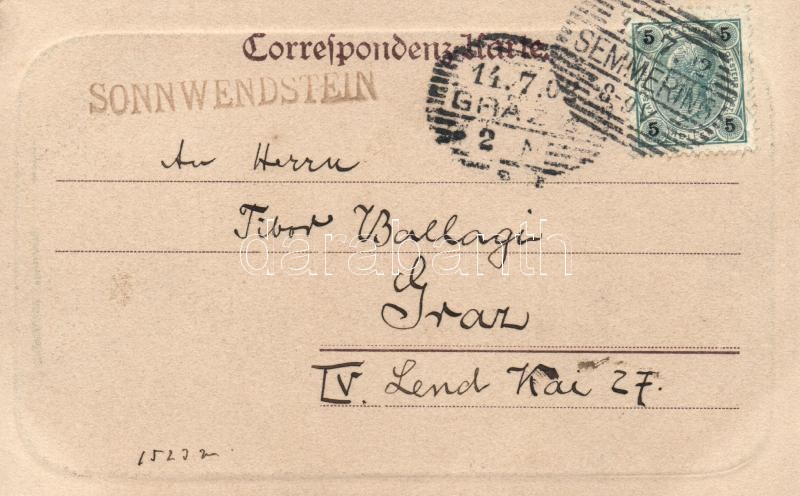 Correspondenz-Karte.
SONNWENDSTEIN
14.7.0
GRAZ
2
SEMMERING
5 5
5 5
An Herrn
Tibor Ballagi
darabanth
Graz
IV. Lend Kai 27.
1523 m